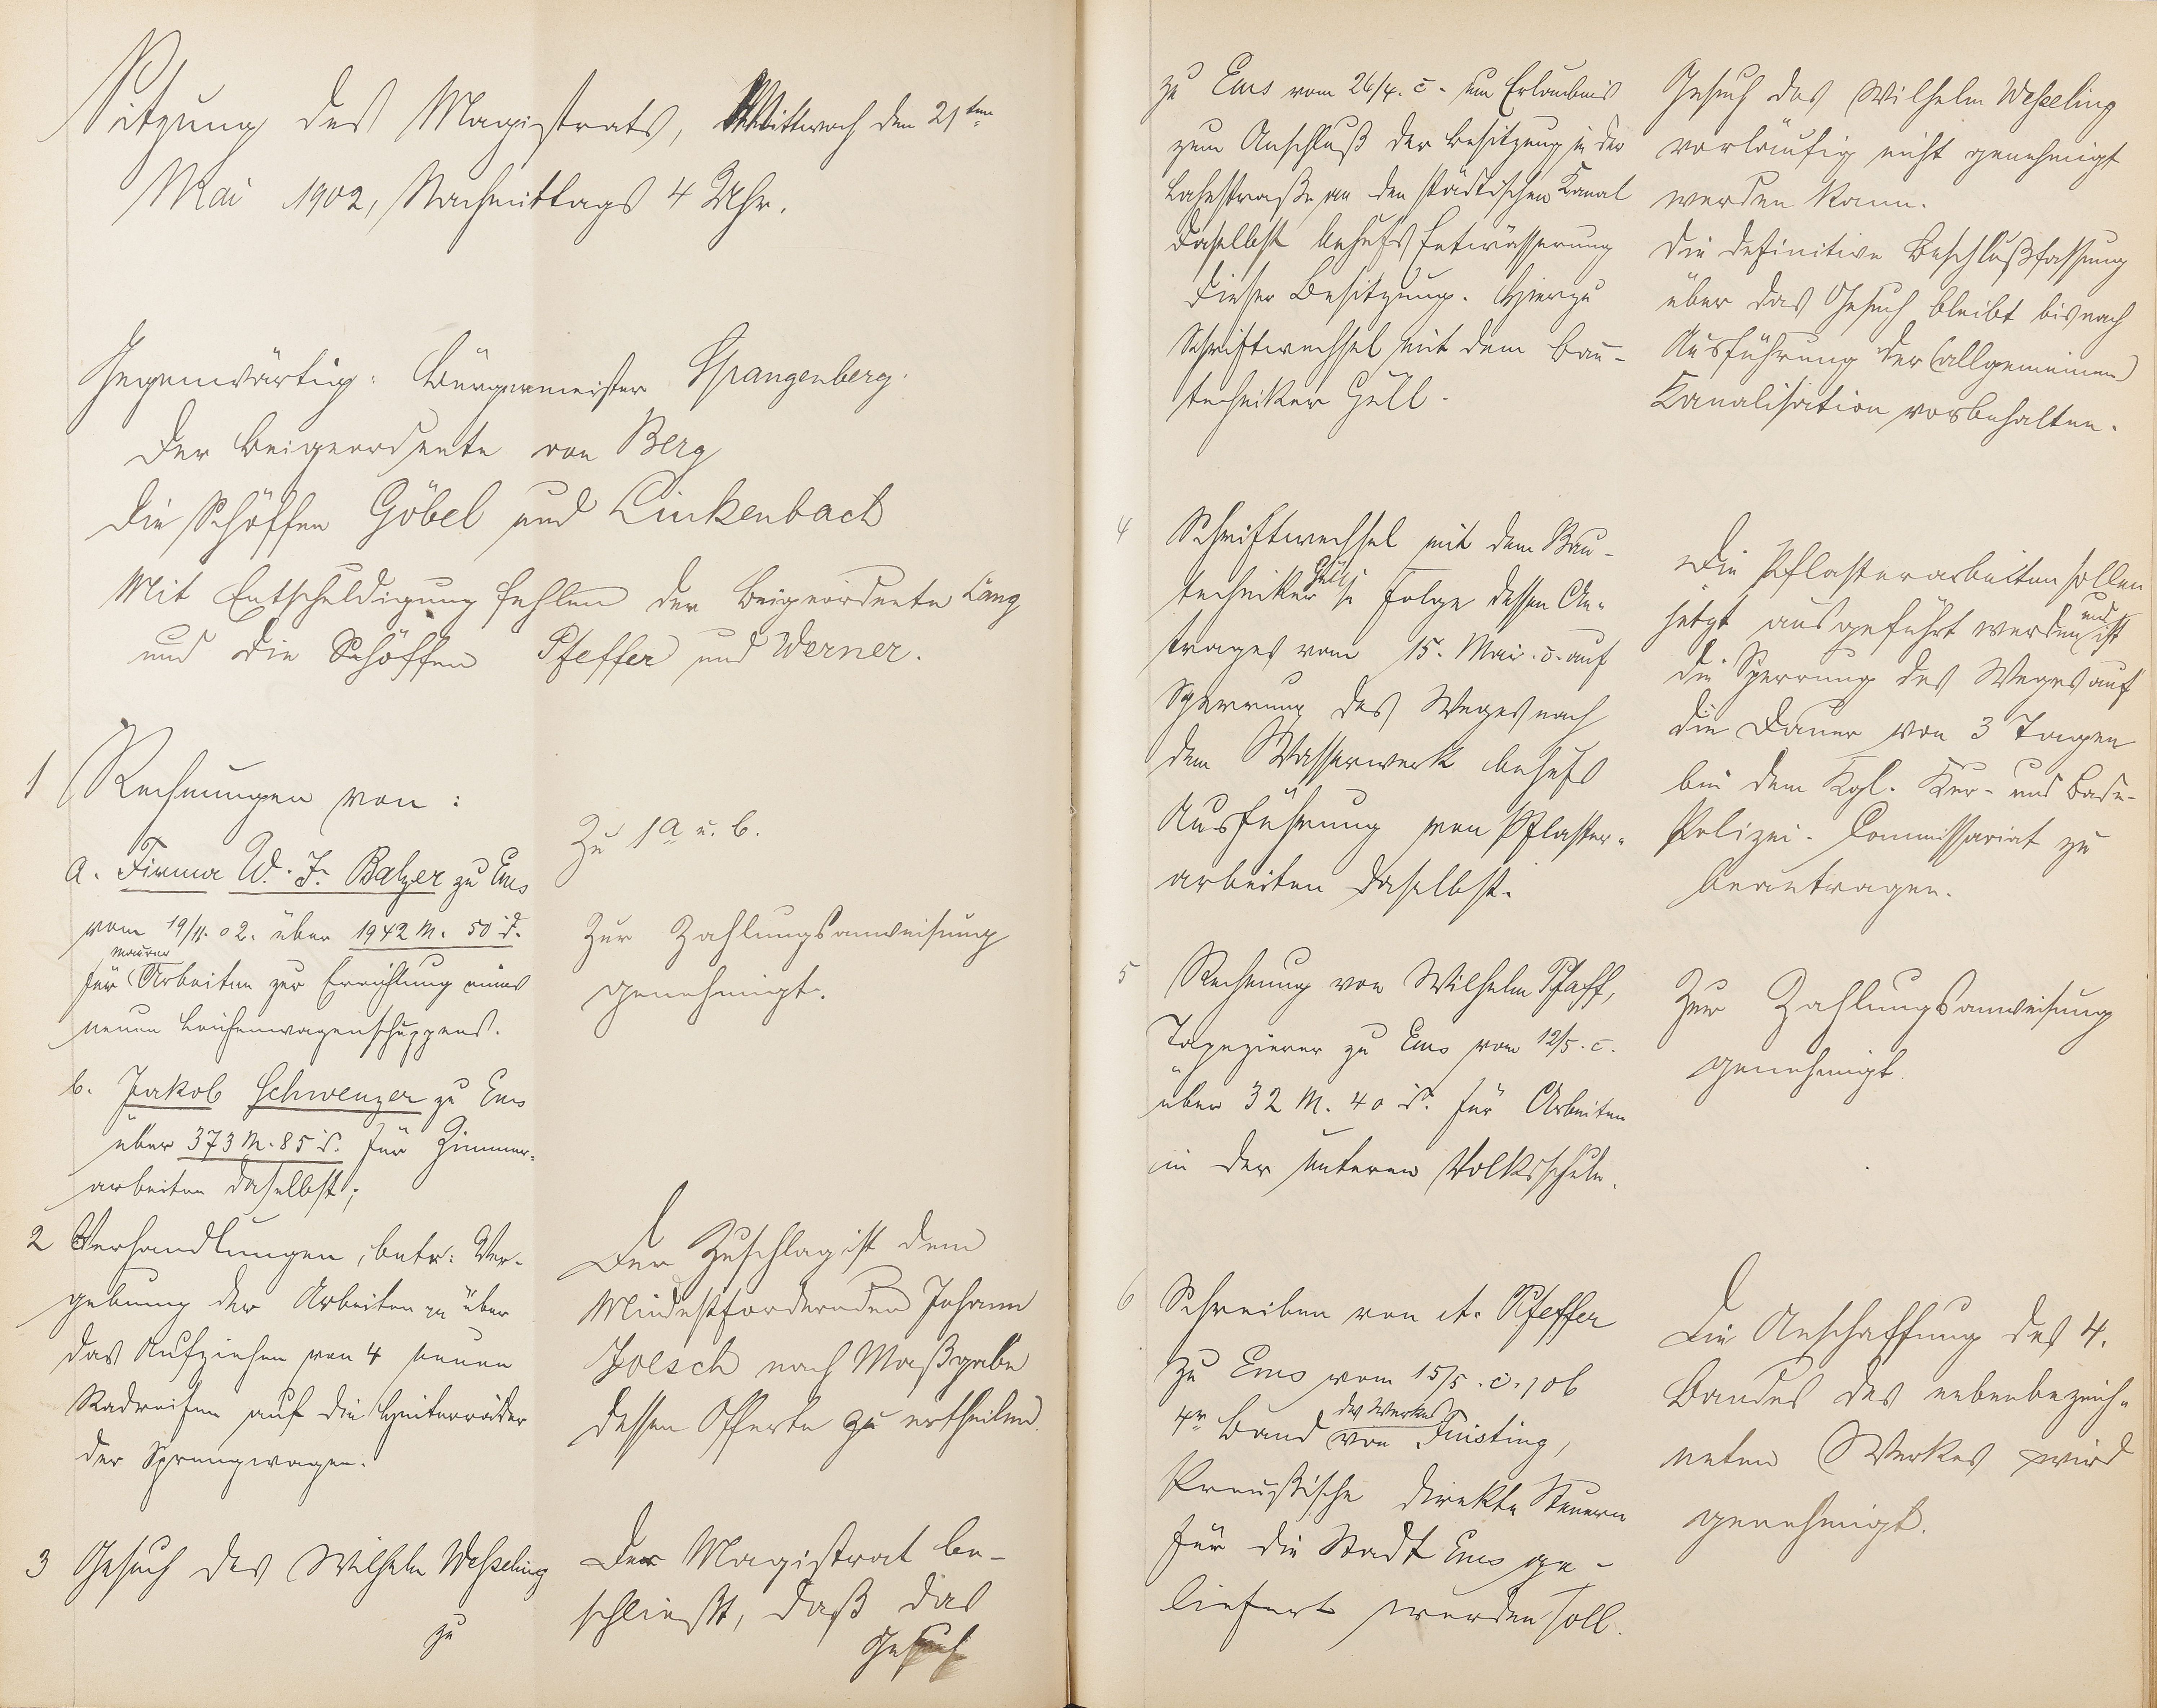 Sitzung des Magistrats, Mittwoch den 21ten
Mai 1902, Nachmittags 4 Uhr.
Gegenwärtig: Bürgermeister Spangenberg.
Der Beigeordnete von Berg
Die Schöffen Göbel und Linkenbach
Mit Entschuldigung fehlen der Beigeordnete Lang
und die Schöffen Pfeffer und Werner.
1 Rechnungen von:
a. Firma W. J. Balzer zu Ems
vom über 1942 M. 50 d.
Maurer
für Arbeiten zur Errichtung eines
neuen Leichenwagenschuppens.
b. Jakob Schwenzer zu Ems
über 373 M. 85 d. für Zimmer-
arbeiten daselbst;
Zu 1a u. b.
Zur Zahlungsanweisung
genehmigt.
2 Verhandlungen, betr: Ver-
gebung der Arbeiten über
das Aufziehen von 4 neuen
Radreifen auf die Hinterräder
der Sprengwagen.
Der Zuschlag ist dem
Mindestfordernden Johann
Joesch nach Maßgabe
dessen Offerte zu ertheilen.
3 Gesuch des Wilhelm Weßeling
zu
Der Magistrat be-
schließt, daß das
Gesuch
zu Ems vom 26/4. c. um Erlaubnis
zum Anschluß der Besitzung in der
Lahnstraße an den städtischen Kanal
daselbst behufs Entwässerung
dieser Besitzung. Hierzu
Schriftwechsel mit dem Bau-
techniker Güll.
Gesuch des Wilhelm Weßeling
vorläufig nicht genehmigt
werden kann.
Die definitive Beschlußfassung
über das Gesuch bleibt bis nach
Ausführung der (allgemeinen)
Kanalisation vorbehalten.
4 Schriftwechsel mit dem Bau-
techniker Güll in Folge dessen An-
trages vom 15. Mai c. auf
Sperrung des Weges nach
dem Wasserwerk behufs
Ausführung von Pflaster-
arbeiten daselbst.
Die Pflasterarbeiten sollen
jetzt ausgeführt werden und ist
die Sperrung des Weges auf
die Dauer von 3 Tagen
bei dem Kgl. Kur- und Bade-
Polizei-Commissariat zu
beantragen.
5 Rechnung von Wilhelm Pfaff,
Tapezierer zu Ems vom 12/5. c.
über 32 M. 40 d. für Arbeiten
in der unteren Volksschule.
Zur Zahlungsanweisung
genehmigt.
6 Schreiben von A. Pfeffer
zu Ems vom 15/5. c., ob
4r Band des Werkes von Fuisting,
Preußische direkte Steuern
für die Stadt Ems ge-
liefert werden soll.
Die Anschaffung des 4.
Bandes des nebenbezeich-
neten Werkes wird
genehmigt.